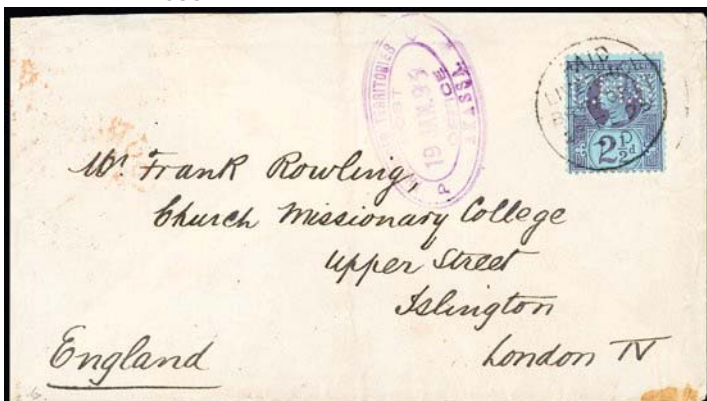 PAID
LIV
TERRITORIES
POST OFFICE
19 JAN. 93
AKASSA
2½d
Mr Frank Rowling,
Church Missionary College
Upper Street
Islington
London N
England